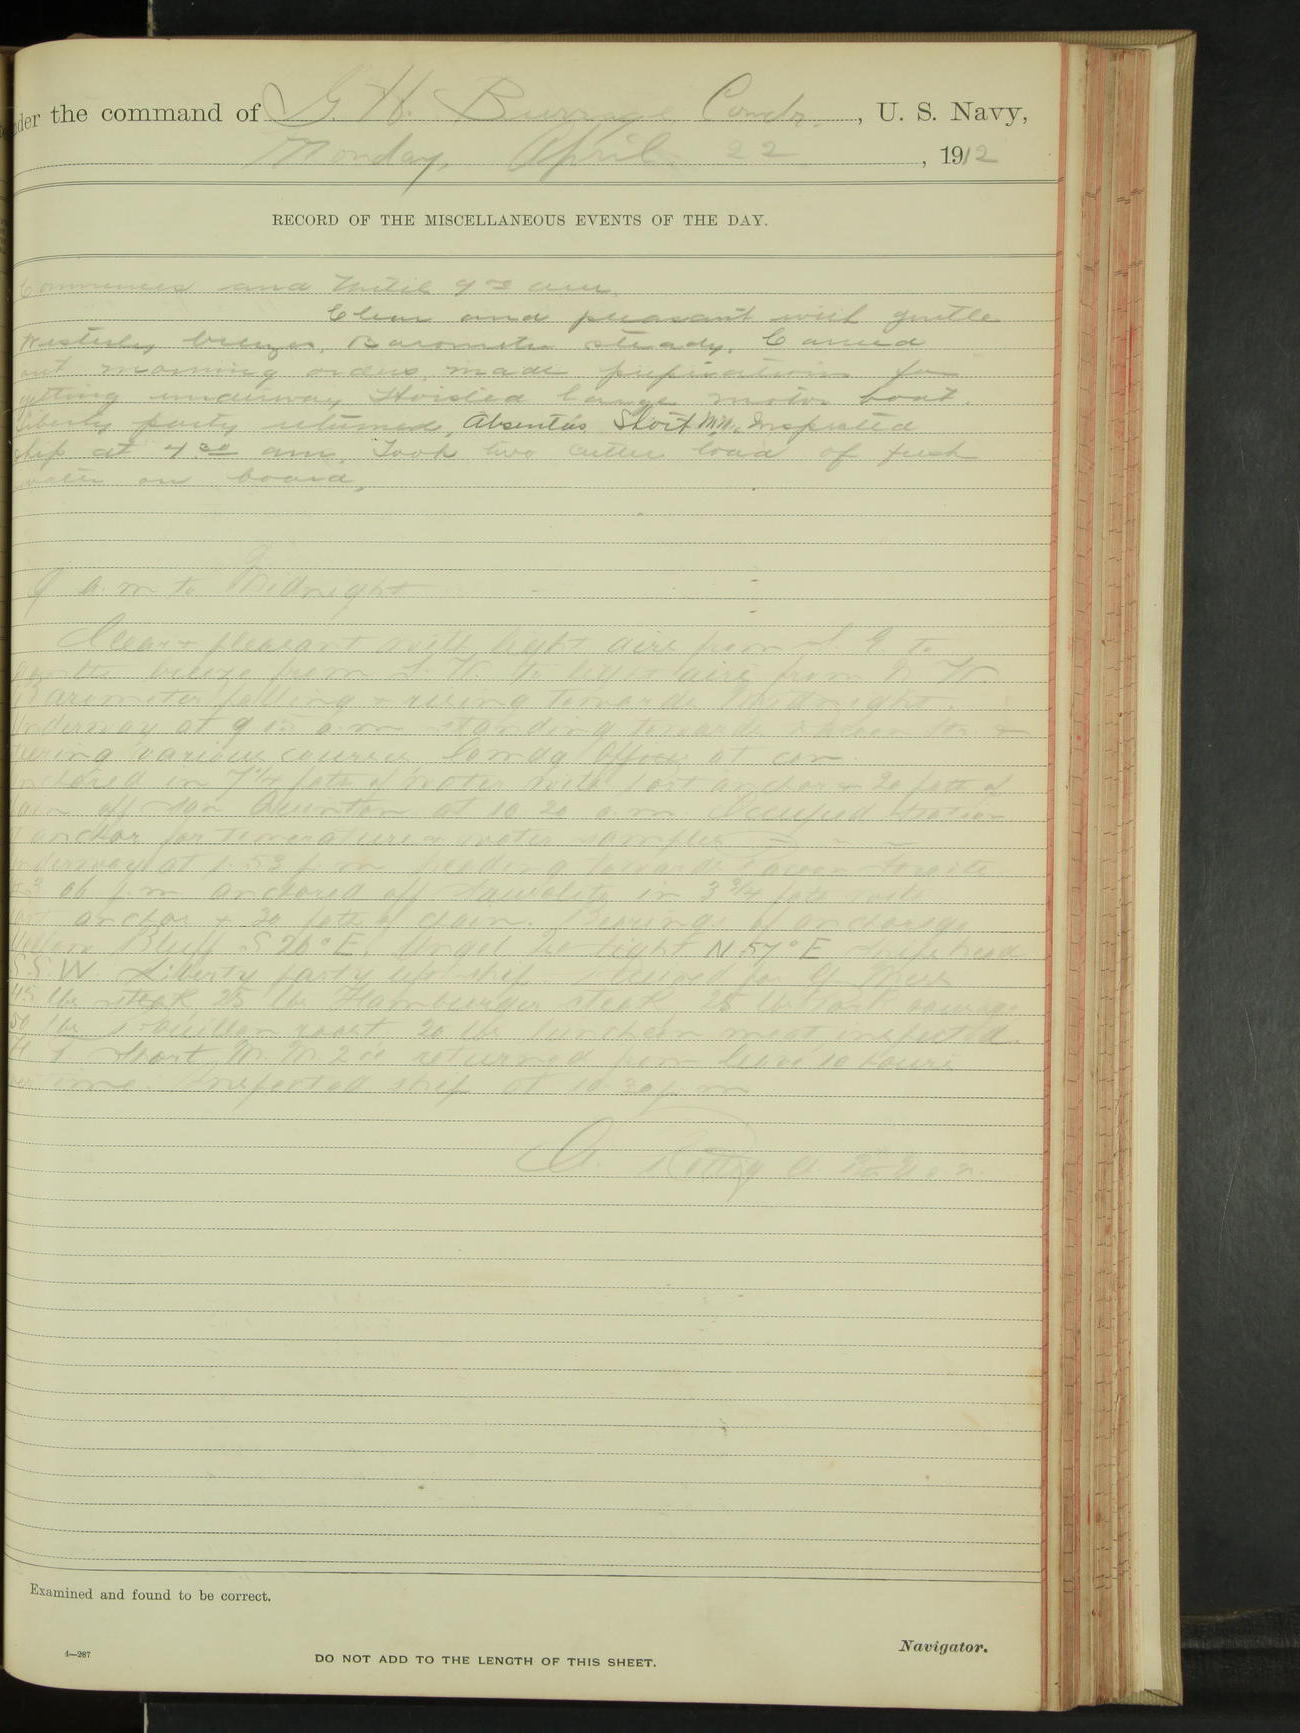 under the command of G H. Burrage Comdr., U. S. Navy,
Monday, April 22, 1912
RECORD OF THE MISCELLANEOUS EVENTS OF THE DAY.
Commences and Until 9 00 am.
Clear and pleasant with gentle
Westerly breezes, Barometer steady. Carried
out morning orders, made preparations for
getting underway Hoisted barge motor boat.
Liberty party returned, Absentees Short MM, Inspected
ship at 4 30 am, Took two cutter load of fresh
water on board,
9 a.m to Midnight
Clear + pleasant with light airs from S. E. to
gentle breeze from S. W. to light airs from N. W.
Barometer falling + rising towards Midnight.
Underway at 9 15 a.m standing towards Racoon Str. +
steering various courses, Comdg Officer at con.
Anchored in 7 1/4 fath of water with port anchor + 20 fath of
chain off San Quentin at 10 20 a.m. Occupied station
at anchor for temperature + water samples
Underway at 1 53 p.m heading towards Racoon Straits
06 p.m anchored off Sausalito in 3 3/4 fath with
port anchor + 20 fath of chain. Bearings of anchorage
Bluff S 20° E. Angel Is. light N 57° E
S.S.W. Liberty party left ship. Received for G. Mess
45 lbs steak 25 lbs Hamburger steak 25 lbs Pork sausage
50 lbs roast 20 lbs luncheon meat inspected.
Short M. M. 2 cl returned from leave 10 hours
over time. Inspected ship at 10 30 p. m
Examined and found to be correct.
Navigator.
4—287
DO NOT ADD TO THE LENGTH OF THIS SHEET.